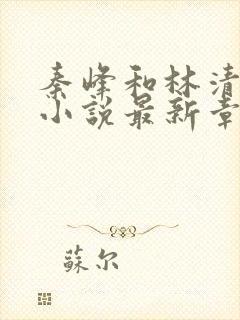 秦峰和林清
小說最新章
蘇尔